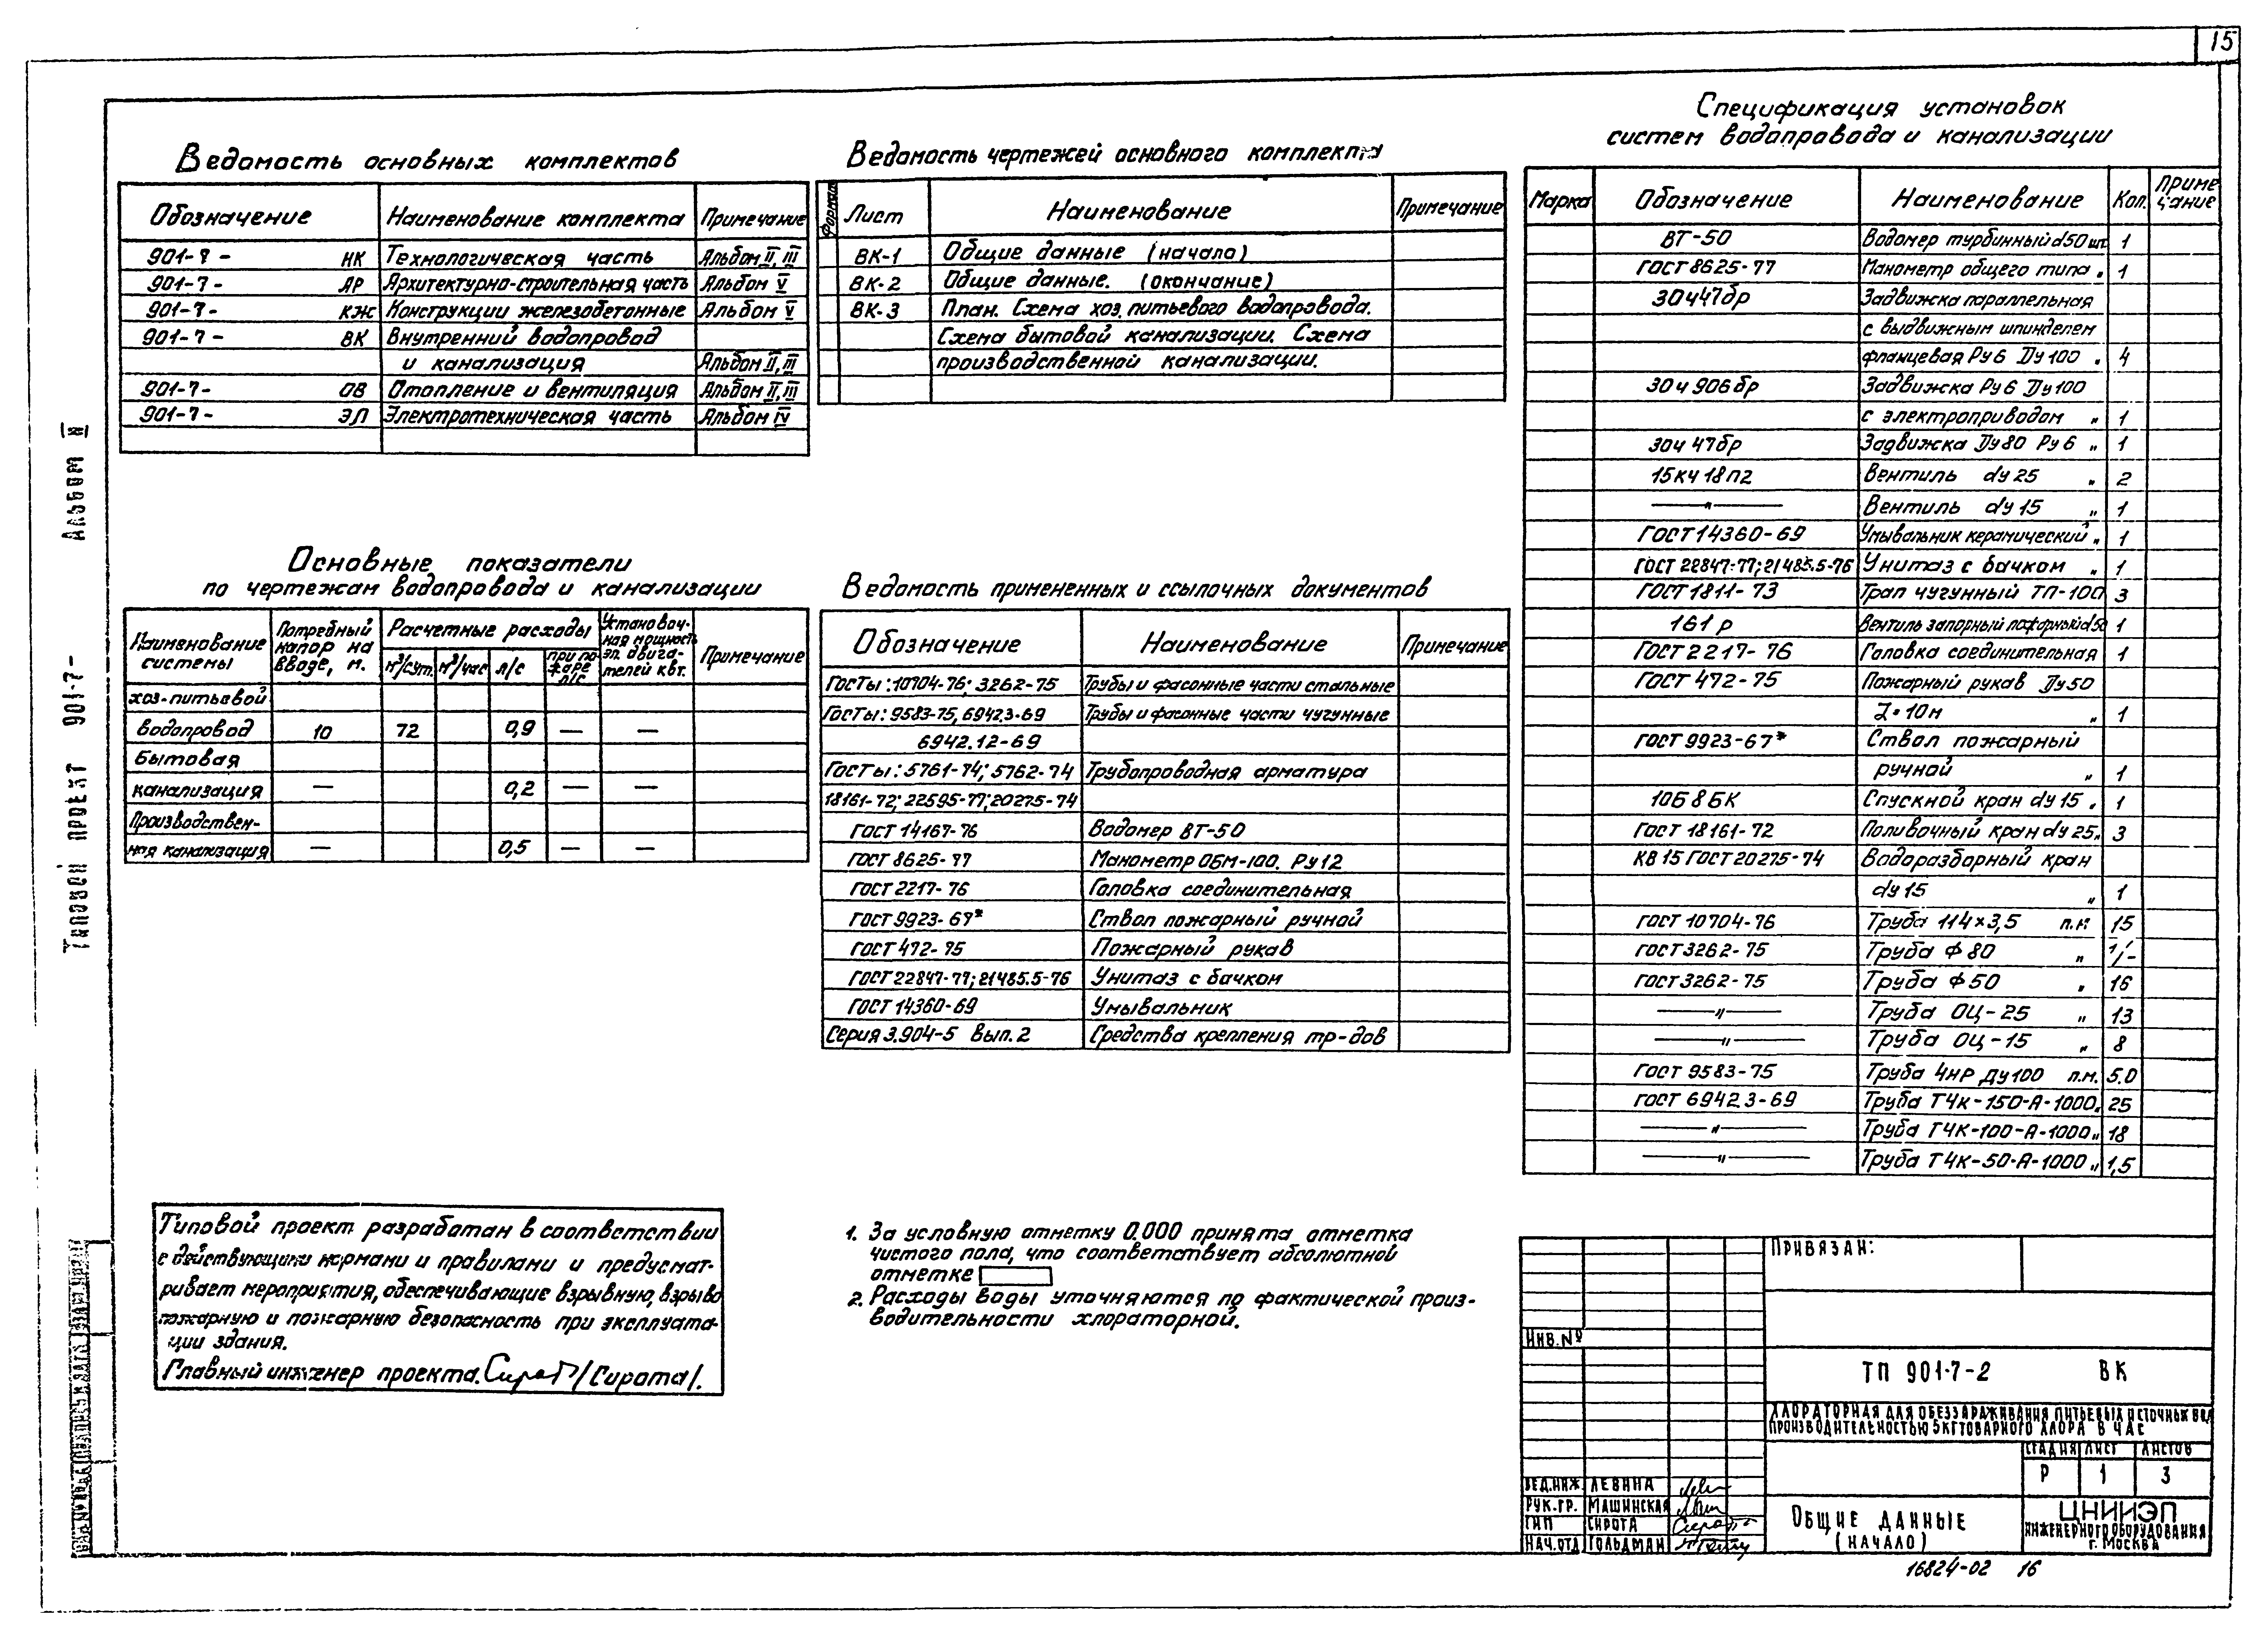 15
Ведомость основных комплектов
Обозначение Наименование комплекта Примечание
901-7- НК Технологическая часть Альбом II, III
901-7- АР Архитектурно-строительная часть Альбом V
901-7- КЖ Конструкции железобетонные Альбом V
901-7- ВК Внутренний водопровод
и канализация Альбом II, III
901-7- ОВ Отопление и вентиляция Альбом II, III
901-7- ЭЛ Электротехническая часть Альбом IV
Ведомость чертежей основного комплекта
Формат Лист Наименование Примечание
ВК-1 Общие данные (начало)
ВК-2 Общие данные. (окончание)
ВК-3 План. Схема хоз. питьевого водопровода.
Схема бытовой канализации. Схема
производственной канализации.
Спецификация установок
систем водопровода и канализации
Марка Обозначение Наименование Кол. Приме-
чание
ВТ-50 Водомер турбинный d50 шт. 1
ГОСТ 8625-77 Манометр общего типа " 1
30ч47бр Задвижка параллельная
с выдвижным шпинделем
фланцевая Ру6 Ду100 " 4
30ч906бр Задвижка Ру6 Ду100
с электроприводом " 1
30ч47бр Задвижка Ду80 Ру6 " 1
15кч18п2 Вентиль dу25 " 2
—"— Вентиль dу15 " 1
ГОСТ 14360-69 Умывальник керамический " 1
ГОСТ 22847-77; 21485.5-76 Унитаз с бачком " 1
ГОСТ 1811-73 Трап чугунный ТП-100 3
161р Вентиль запорный пожарный d50 1
ГОСТ 2217-76 Головка соединительная 1
ГОСТ 472-75 Пожарный рукав Ду50
L=10м " 1
ГОСТ 9923-67* Ствол пожарный
ручной " 1
10Б8БК Спускной кран dу15 " 1
ГОСТ 18161-72 Поливочный кран dу25 " 3
КВ15 ГОСТ 20275-74 Водоразборный кран
dу15 " 1
ГОСТ 10704-76 Труба 114×3,5 п.м. 15
ГОСТ 3262-75 Труба Ф80 "
ГОСТ 3262-75 Труба Ф50 " 16
—"— Труба ОЦ-25 " 13
—"— Труба ОЦ-15 " 8
ГОСТ 9583-75 Труба ЧНР Ду100 п.м. 5.0
ГОСТ 6942.3-69 Труба ТЧК-150-А-1000 " 25
—"— Труба ТЧК-100-А-1000 " 18
—"— Труба ТЧК-50-А-1000 " 1,5
Основные показатели
по чертежам водопровода и канализации
Наименование
системы
Потребный
напор на
вводе, м.
Расчетные расходы
м³/сут. м³/час л/с при по-
жаре
л/с
Установоч-
ная мощность
эл. двига-
телей квт.
Примечание
хоз-питьевой
водопровод 10 72 0,9 — —
Бытовая
канализация — 0,2 — —
Производствен-
ная канализация — 0,5 — —
Ведомость примененных и ссылочных документов
Обозначение Наименование Примечание
ГОСТы: 10704-76; 3262-75 Трубы и фасонные части стальные
ГОСТы: 9583-75, 6942.3-69 Трубы и фасонные части чугунные
6942.12-69
ГОСТы: 5761-74; 5762-74 Трубопроводная арматура
18161-72; 22595-77; 20275-74
ГОСТ 14167-76 Водомер ВТ-50
ГОСТ 8625-77 Манометр ОБМ-100. Ру12
ГОСТ 2217-76 Головка соединительная
ГОСТ 9923-67* Ствол пожарный ручной
ГОСТ 472-75 Пожарный рукав
ГОСТ 22847-77; 21485.5-76 Унитаз с бачком
ГОСТ 14360-69 Умывальник
Серия 3.904-5 вып. 2 Средства крепления тр-дов
Типовой проект разработан в соответствии
с действующими нормами и правилами и предусмат-
ривает мероприятия, обеспечивающие взрывную, взрыво
пожарную и пожарную безопасность при эксплуата-
ции здания.
Главный инженер проекта. /Сирота/.
1. За условную отметку 0.000 принята отметка
чистого пола, что соответствует абсолютной
отметке
2. Расходы воды уточняются по фактической произ-
водительности хлораторной.
Типовой проект 901-7- Альбом
Привязан:
Инв. №
ТП 901-7-2 ВК
Хлораторная для обеззараживания питьевых и сточных вод
производительностью 5кг товарного хлора в час
Стадия Лист Листов
Р 1 3
Вед.инж. Левина
Рук.гр. Машинская
ГИП Сирота
Нач.отд Гольдман
Общие данные
(начало)
ЦНИИЭП
инженерного оборудования
г. Москва
16824-02 16